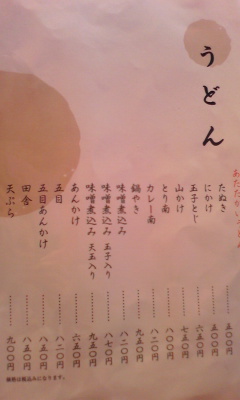 うどん
たぬき 五〇〇円
にかけ 五〇〇円
玉子とじ 六五〇円
山かけ 七五〇円
とり南 八〇〇円
カレー南 八二〇円
鍋やき 九五〇円
味噌煮込み 八二〇円
味噌煮込み 玉子入り 八七〇円
味噌煮込み 天玉入り 九五〇円
あんかけ 六五〇円
五目 八二〇円
五目あんかけ 八五〇円
田舎 八五〇円
天ぷら 九〇〇円
価格は税込みになります。